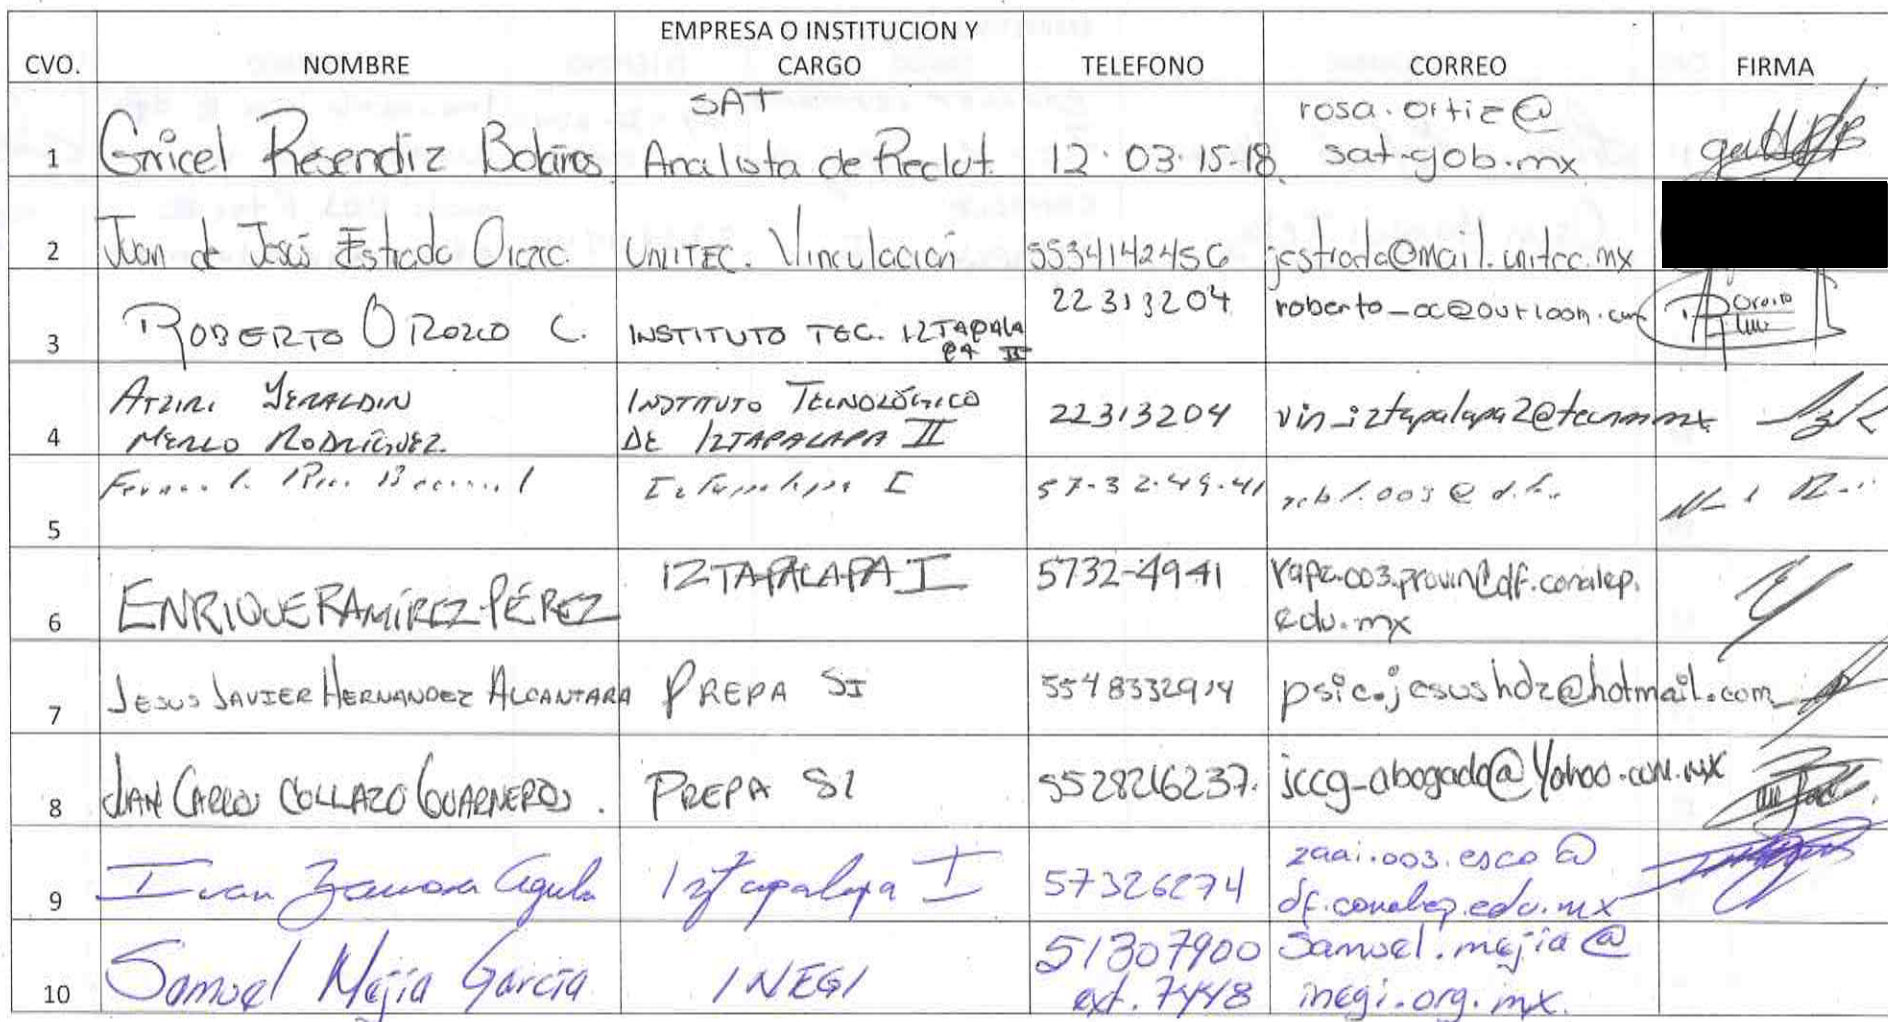 CVO. NOMBRE EMPRESA O INSTITUCION Y CARGO TELEFONO CORREO FIRMA
1 Gricel Resendiz Bolaños SAT Analista de Reclut. 12·03·15·18 rosa.ortiz@sat.gob.mx
2 Juan de Jesús Estrada UNITEC. Vinculación 5534142456 jestrada@mail.unitec.mx
3 ROBERTO OROZCO C. INSTITUTO TEC. IZTAPALAPA II 22313204
4 ATZIRI YERALDIN MERLO RODRÍGUEZ INSTITUTO TECNOLÓGICO DE IZTAPALAPA II 22313204
5 57-32-49-41
6 ENRIQUE RAMÍREZ PÉREZ IZTAPALAPA I 5732-4941 rape.003.provin@df.conalep.edu.mx
7 JESUS JAVIER HERNANDEZ ALCANTARA PREPA SI psic.jesushdz@hotmail.com
8 JUAN CARLOS COLLAZO GUARNEROS. PREPA SI 5528216237. jccg_abogado@Yahoo.com.mx
9 Ivan Zamora Aguila Iztapalapa I 57326274 zaai.003.esco@df.conalep.edu.mx
10 Samuel Mejía García INEGI 51307900 ext. 7448 samuel.mejia@inegi.org.mx.